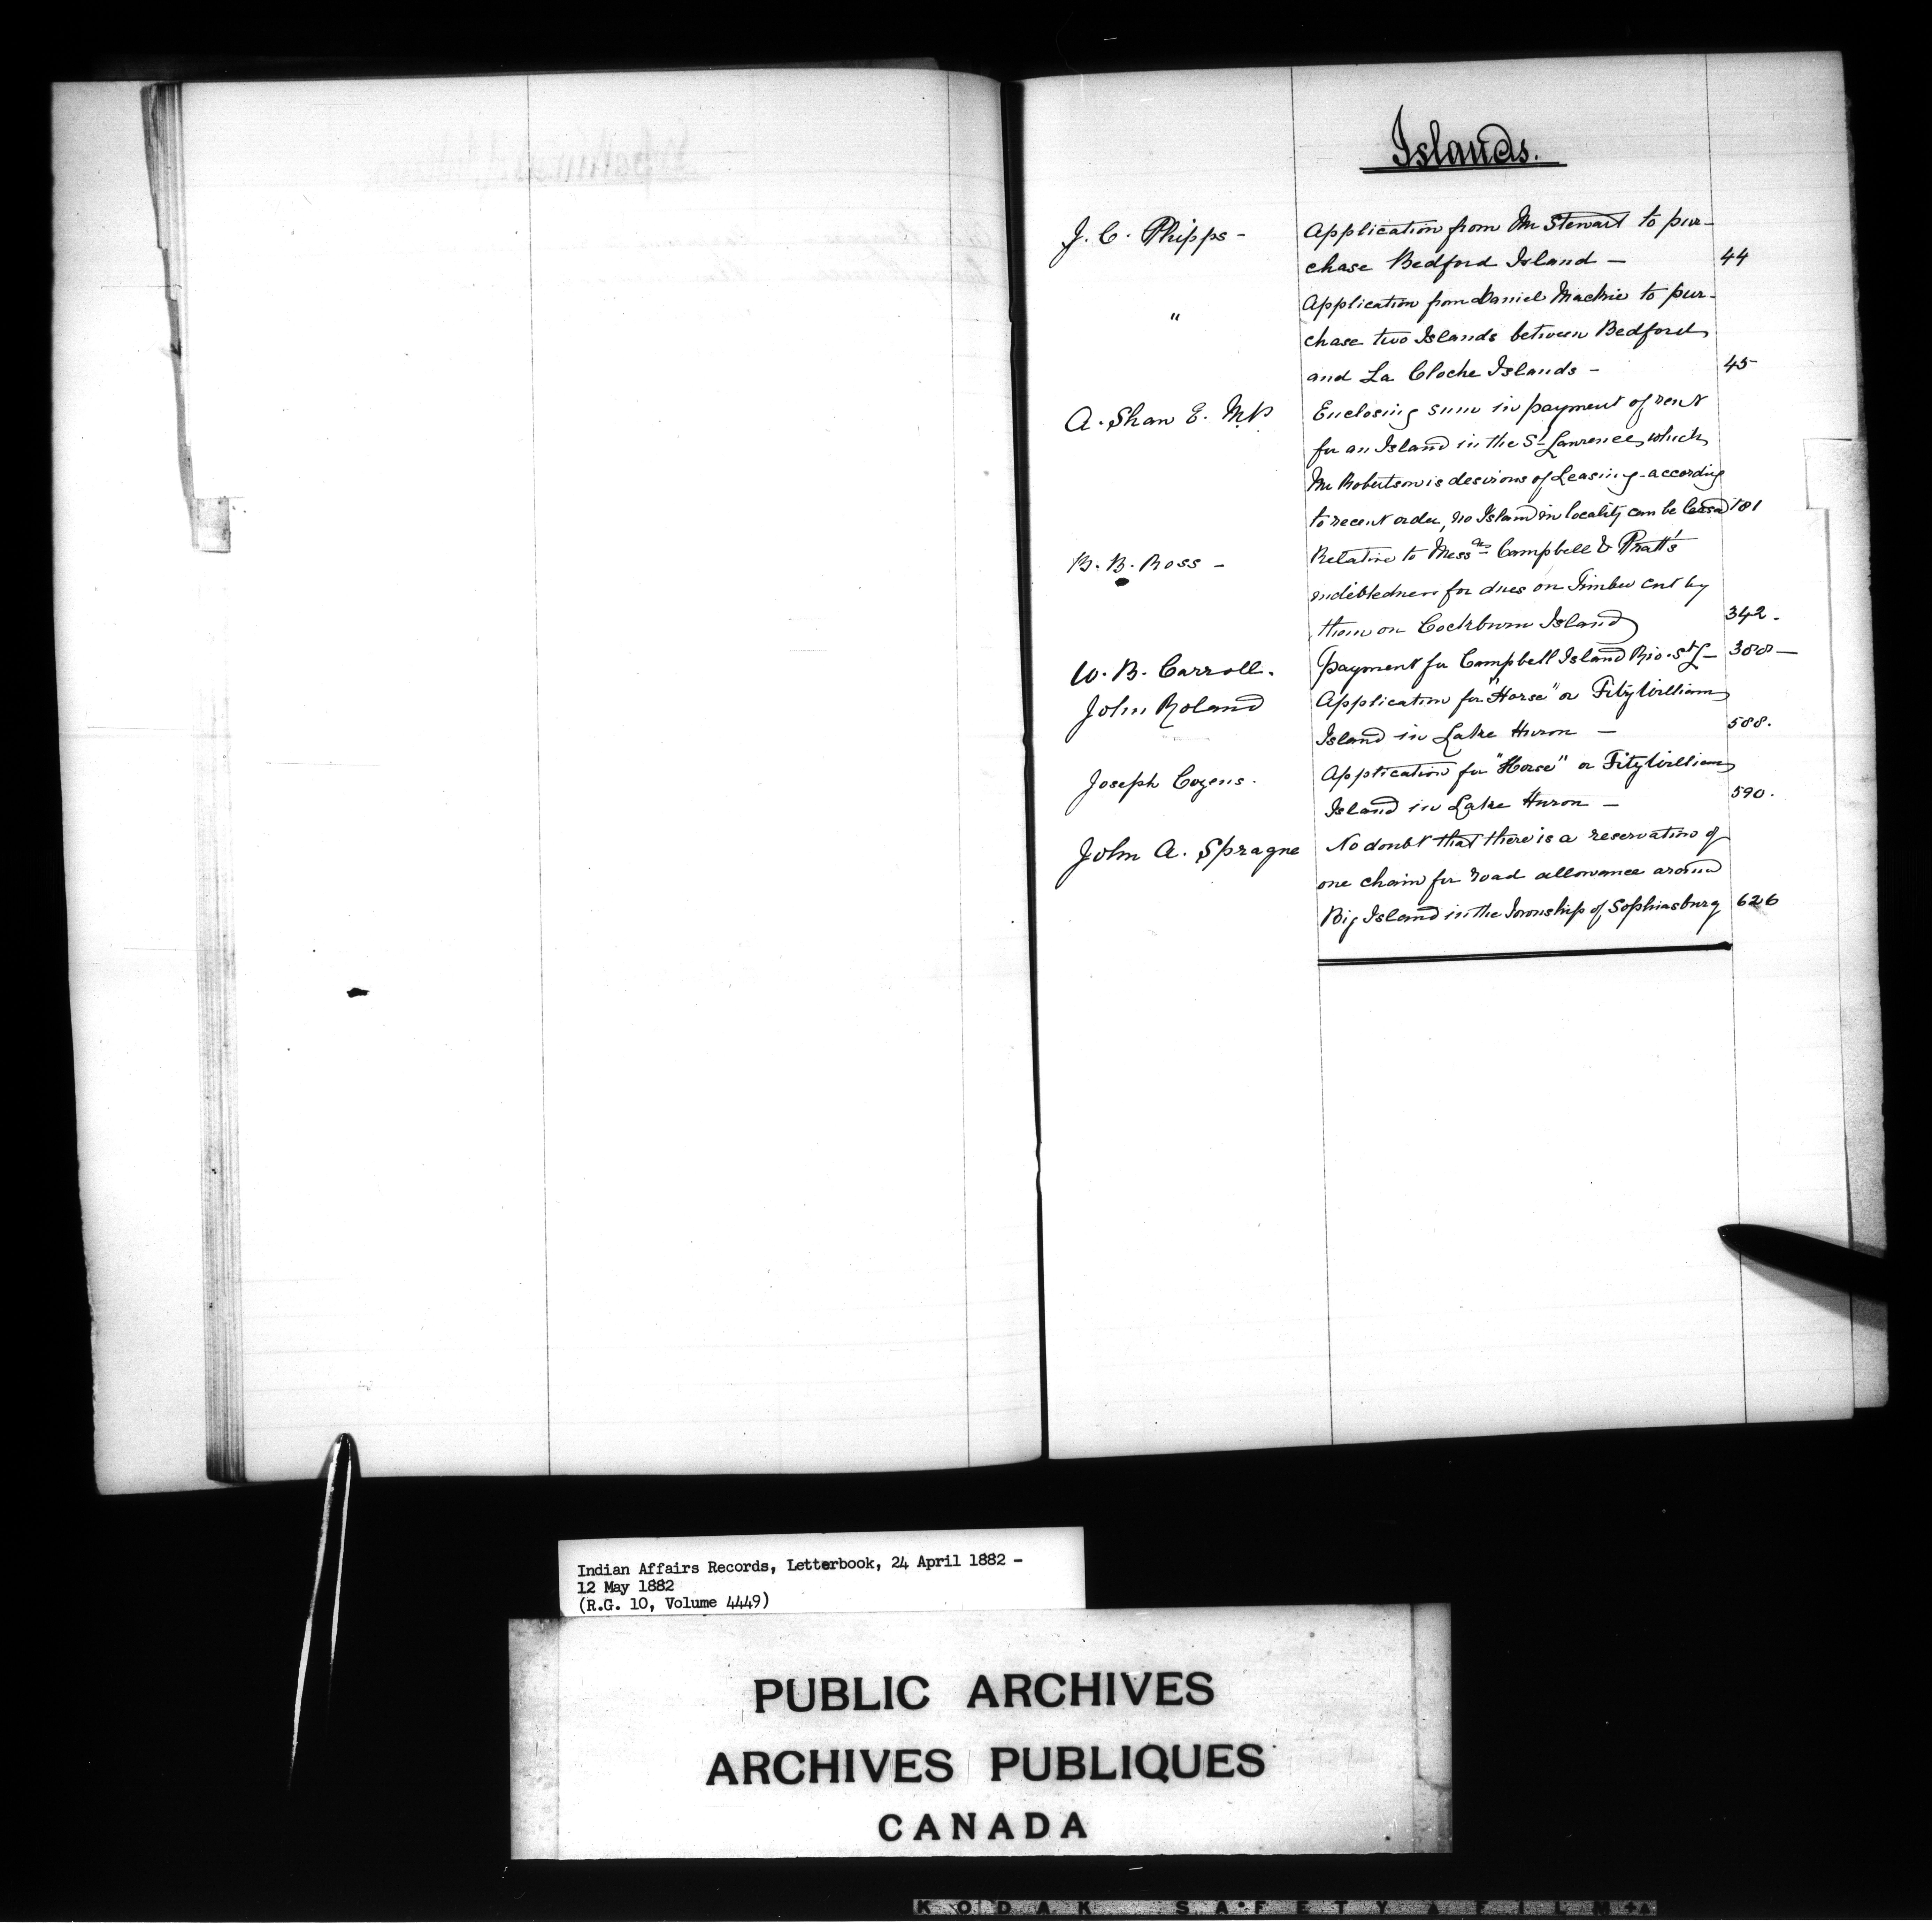 Islands.
J. C. Phipps - Application from Mr Stewart to pur-
chase Bedford Island - 44
" Application from Daniel Mackie to pur-
chase two Islands between Bedford
and La Cloche Islands - 45
A. Shaw E. M.P Enclosing sum in payment of rent
for an Island in the St Lawrence, which
Mr Robertson is desirous of Leasing - according
to recent order, no Island in locality can be leased 181
B. B. Ross - Relative to Messrs Campbell & Pratt's
indebtedness for dues on Timber cut by
them on Cockburn Island 342.
W. B. Carroll. payment for Campbell Island Riv. St L - 388 -
John Roland Application for "Horse" or FitzWilliam
Island in Lake Huron - 588.
Joseph Cozens. Application for "Horse" or FitzWilliam
Island in Lake Huron - 590.
John A. Sprague No doubt that there is a reservation of
one chain for road allowance around
Big Island in the Township of Sophiasburg 626
Indian Affairs Records, Letterbook, 24 April 1882 -
12 May 1882
(R.G. 10, Volume 4449)
PUBLIC ARCHIVES
ARCHIVES PUBLIQUES
CANADA
KODAK SAFETY FILM